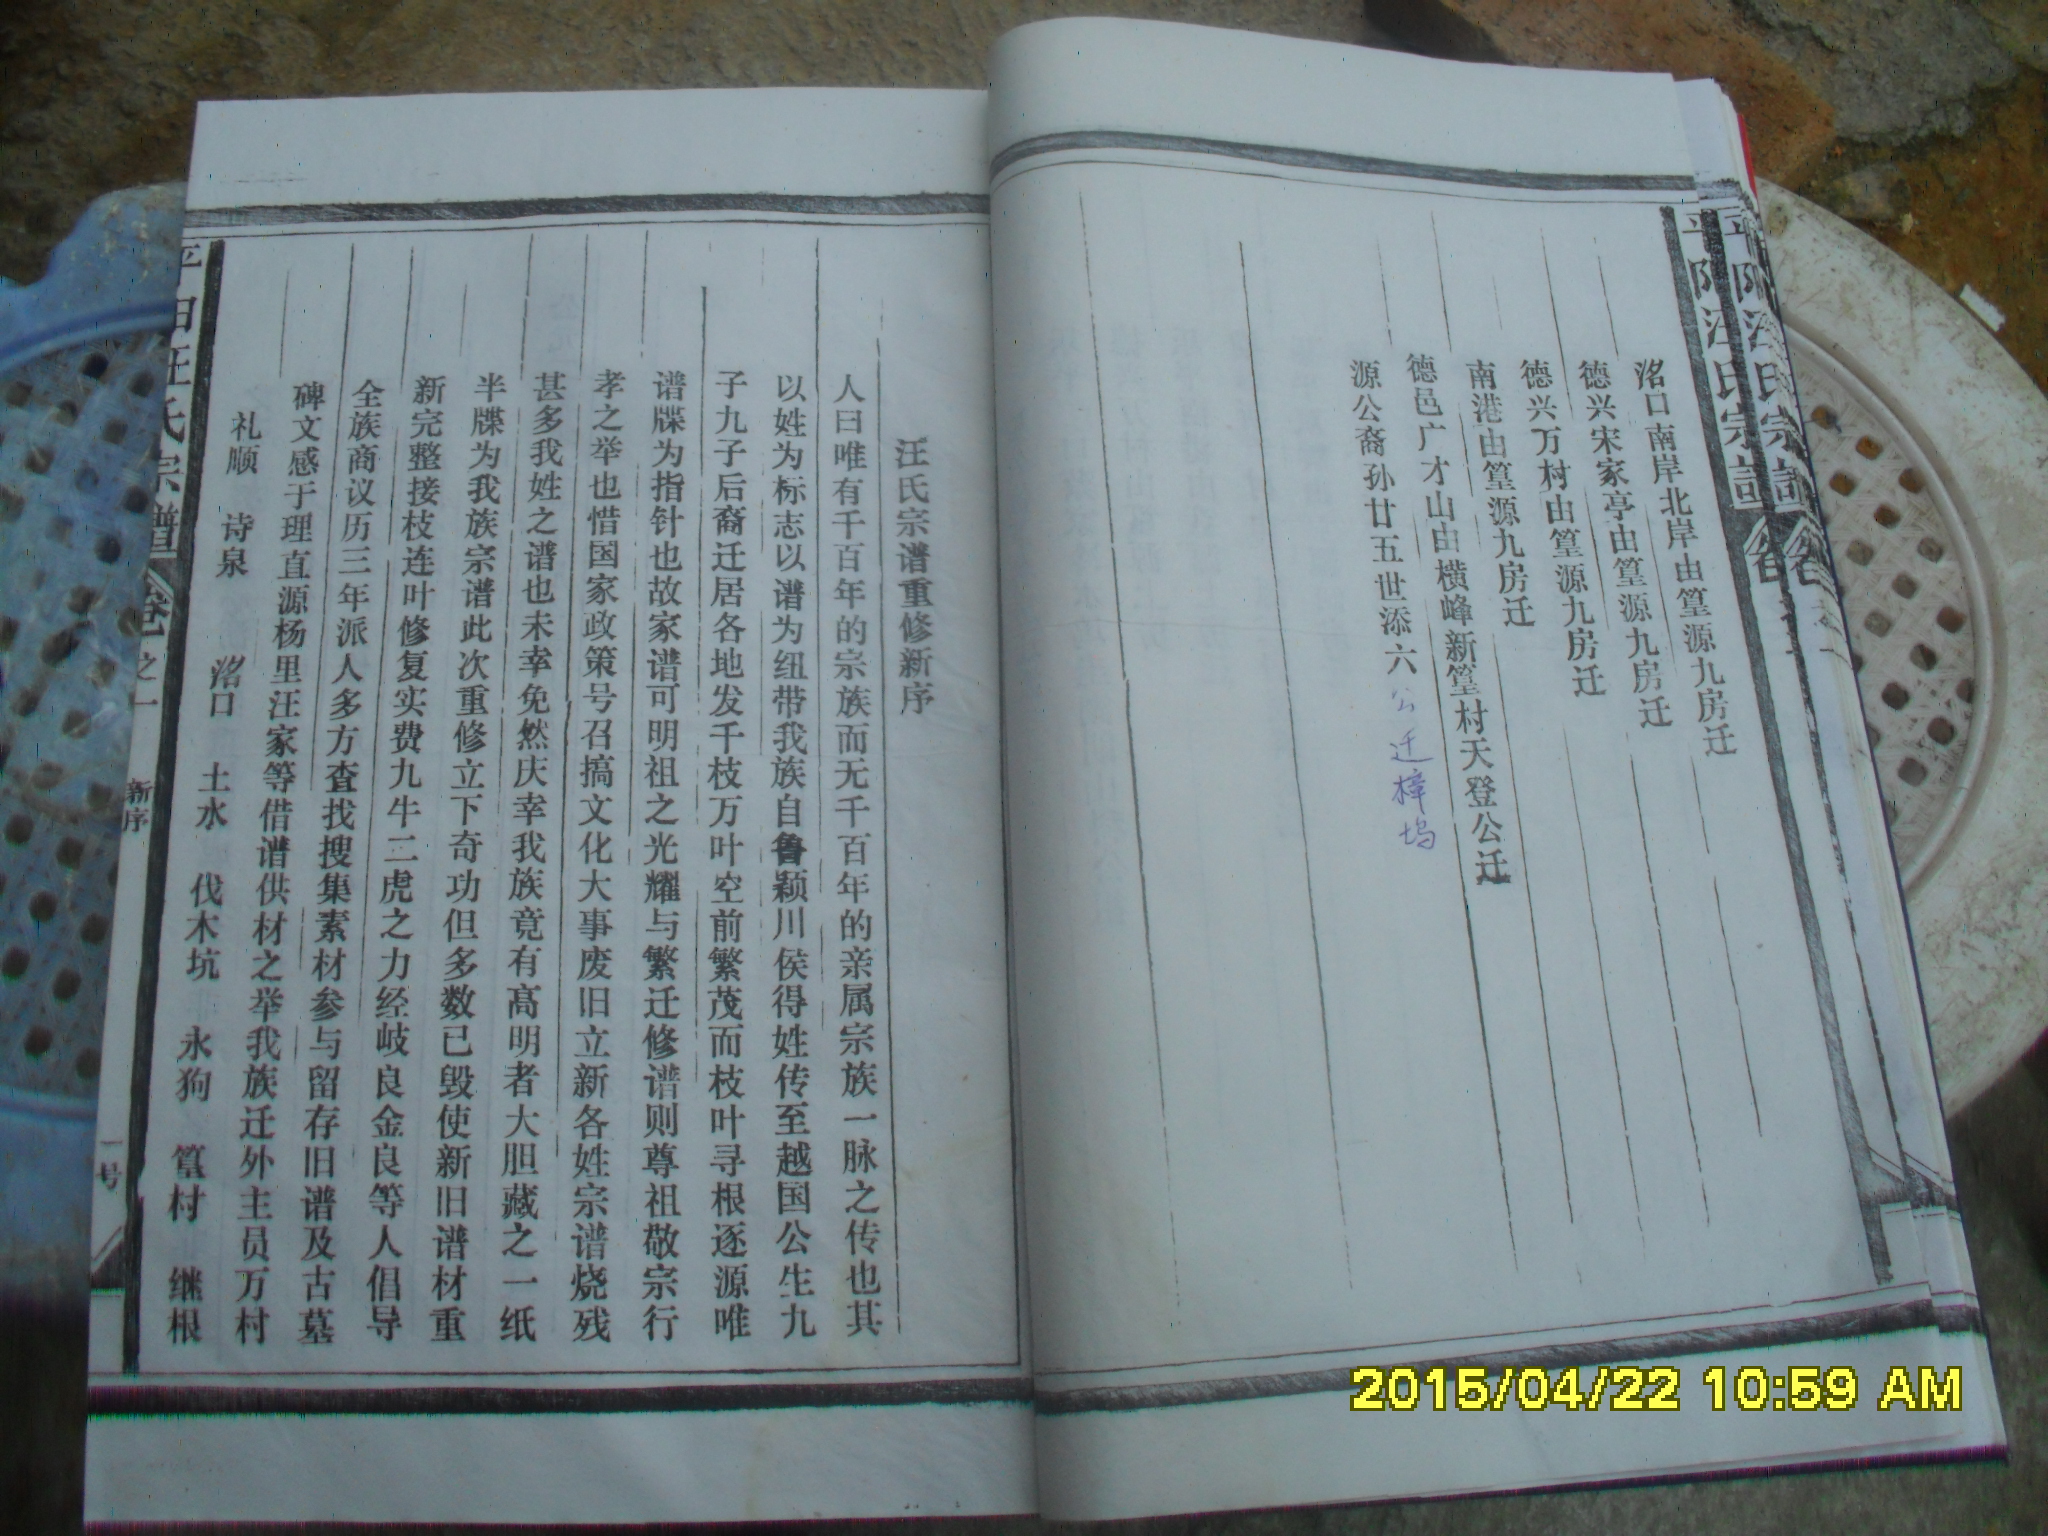 洺口南岸北岸由篁源九房迁
德兴宋家亭由篁源九房迁
德兴万村由篁源九房迁
南港由篁源九房迁
德邑广才山由横峰新篁村天登公迁
源公裔孙廿五世添六公迁樟坞
汪氏宗谱重修新序
人曰唯有千百年的宗族而无千百年的亲属宗族一脉之传也其
以姓为标志以谱为纽带我族自鲁颖川侯得姓传至越国公生九
子九子后裔迁居各地发千枝万叶空前繁茂而枝叶寻根逐源唯
谱牒为指针也故家谱可明祖之光耀与繁迁修谱则尊祖敬宗行
孝之举也惜国家政策号召搞文化大事废旧立新各姓宗谱烧残
甚多我姓之谱也未幸免然庆幸我族竟有高明者大胆藏之一纸
半牒为我族宗谱此次重修立下奇功但多数已毁使新旧谱材重
新完整接枝连叶修复实费九牛二虎之力经岐良金良等人倡导
全族商议历三年派人多方查找搜集素材参与留存旧谱及古墓
碑文感于理直源杨里汪家等借谱供材之举我族迁外主员万村
礼顺 诗泉 洺口 土水 伐木坑 永狗 篁村 继根
平阳汪氏宗谱 卷之一 新序 一号
2015/04/22 10:59 AM